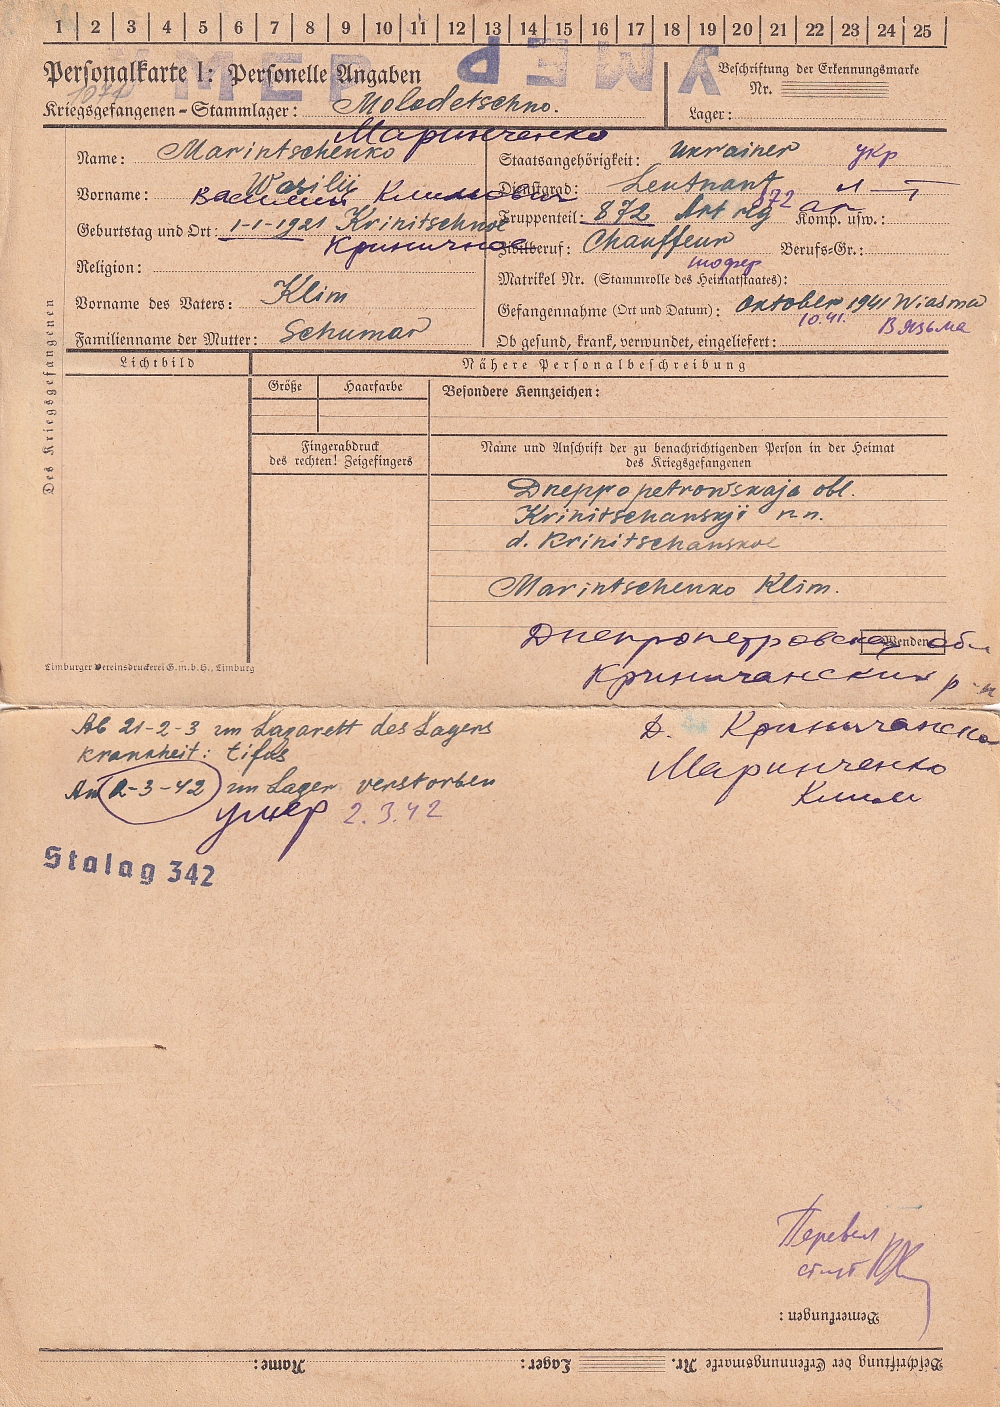 1 2 3 4 5 6 7 8 9 10 11 12 13 14 15 16 17 18 19 20 21 22 23 24 25
УМЕР УМЕР
Personalkarte I: Personelle Angaben
Beschriftung der Erkennungsmarke
Nr.
Kriegsgefangenen-Stammlager: Molodetschno.
Lager:
Маринченко
Name: Marintschenko
Staatsangehörigkeit: Ukrainer укр
Vorname: Wasilij
Василий Климович
Dienstgrad: Leutnant л-т
Geburtstag und Ort: 1-1-1921 Krinitschnoe
Криничное
Truppenteil: 872 Art reg 872 ап Komp. usw.:
Zivilberuf: Chauffeur Berufs-Gr.:
шофер
Religion:
Matrikel Nr. (Stammrolle des Heimatstaates):
Vorname des Vaters: Klim
Gefangennahme (Ort und Datum): Oktober 1941 Wiasma
10.41. Вязьма
Familienname der Mutter: Schumar
Ob gesund, krank, verwundet, eingeliefert:
Des Kriegsgefangenen
Lichtbild
Nähere Personalbeschreibung
Größe Haarfarbe
Besondere Kennzeichen:
Fingerabdruck
des rechten! Zeigefingers
Name und Anschrift der zu benachrichtigenden Person in der Heimat
des Kriegsgefangenen
Dneppopetrowskaja obl.
Krinitschanskji
d. Krinitschanskoe
Marintschenko Klim.
Wenden
Днепропетровская обл
Криничанский р-н
Limburger Vereinsdruckerei G.m.b.H., Limburg
Д. Криничанско
Маринченко
Клим
Ab 21-2-3 im Lazarett des Lagers
krankheit: tifus
Am 2-3-42 im Lager verstorben
умер 2.3.42
Stalag 342
Перевел
Bemerkungen:
Beschriftung der Erkennungsmarke Nr. Lager: Name: